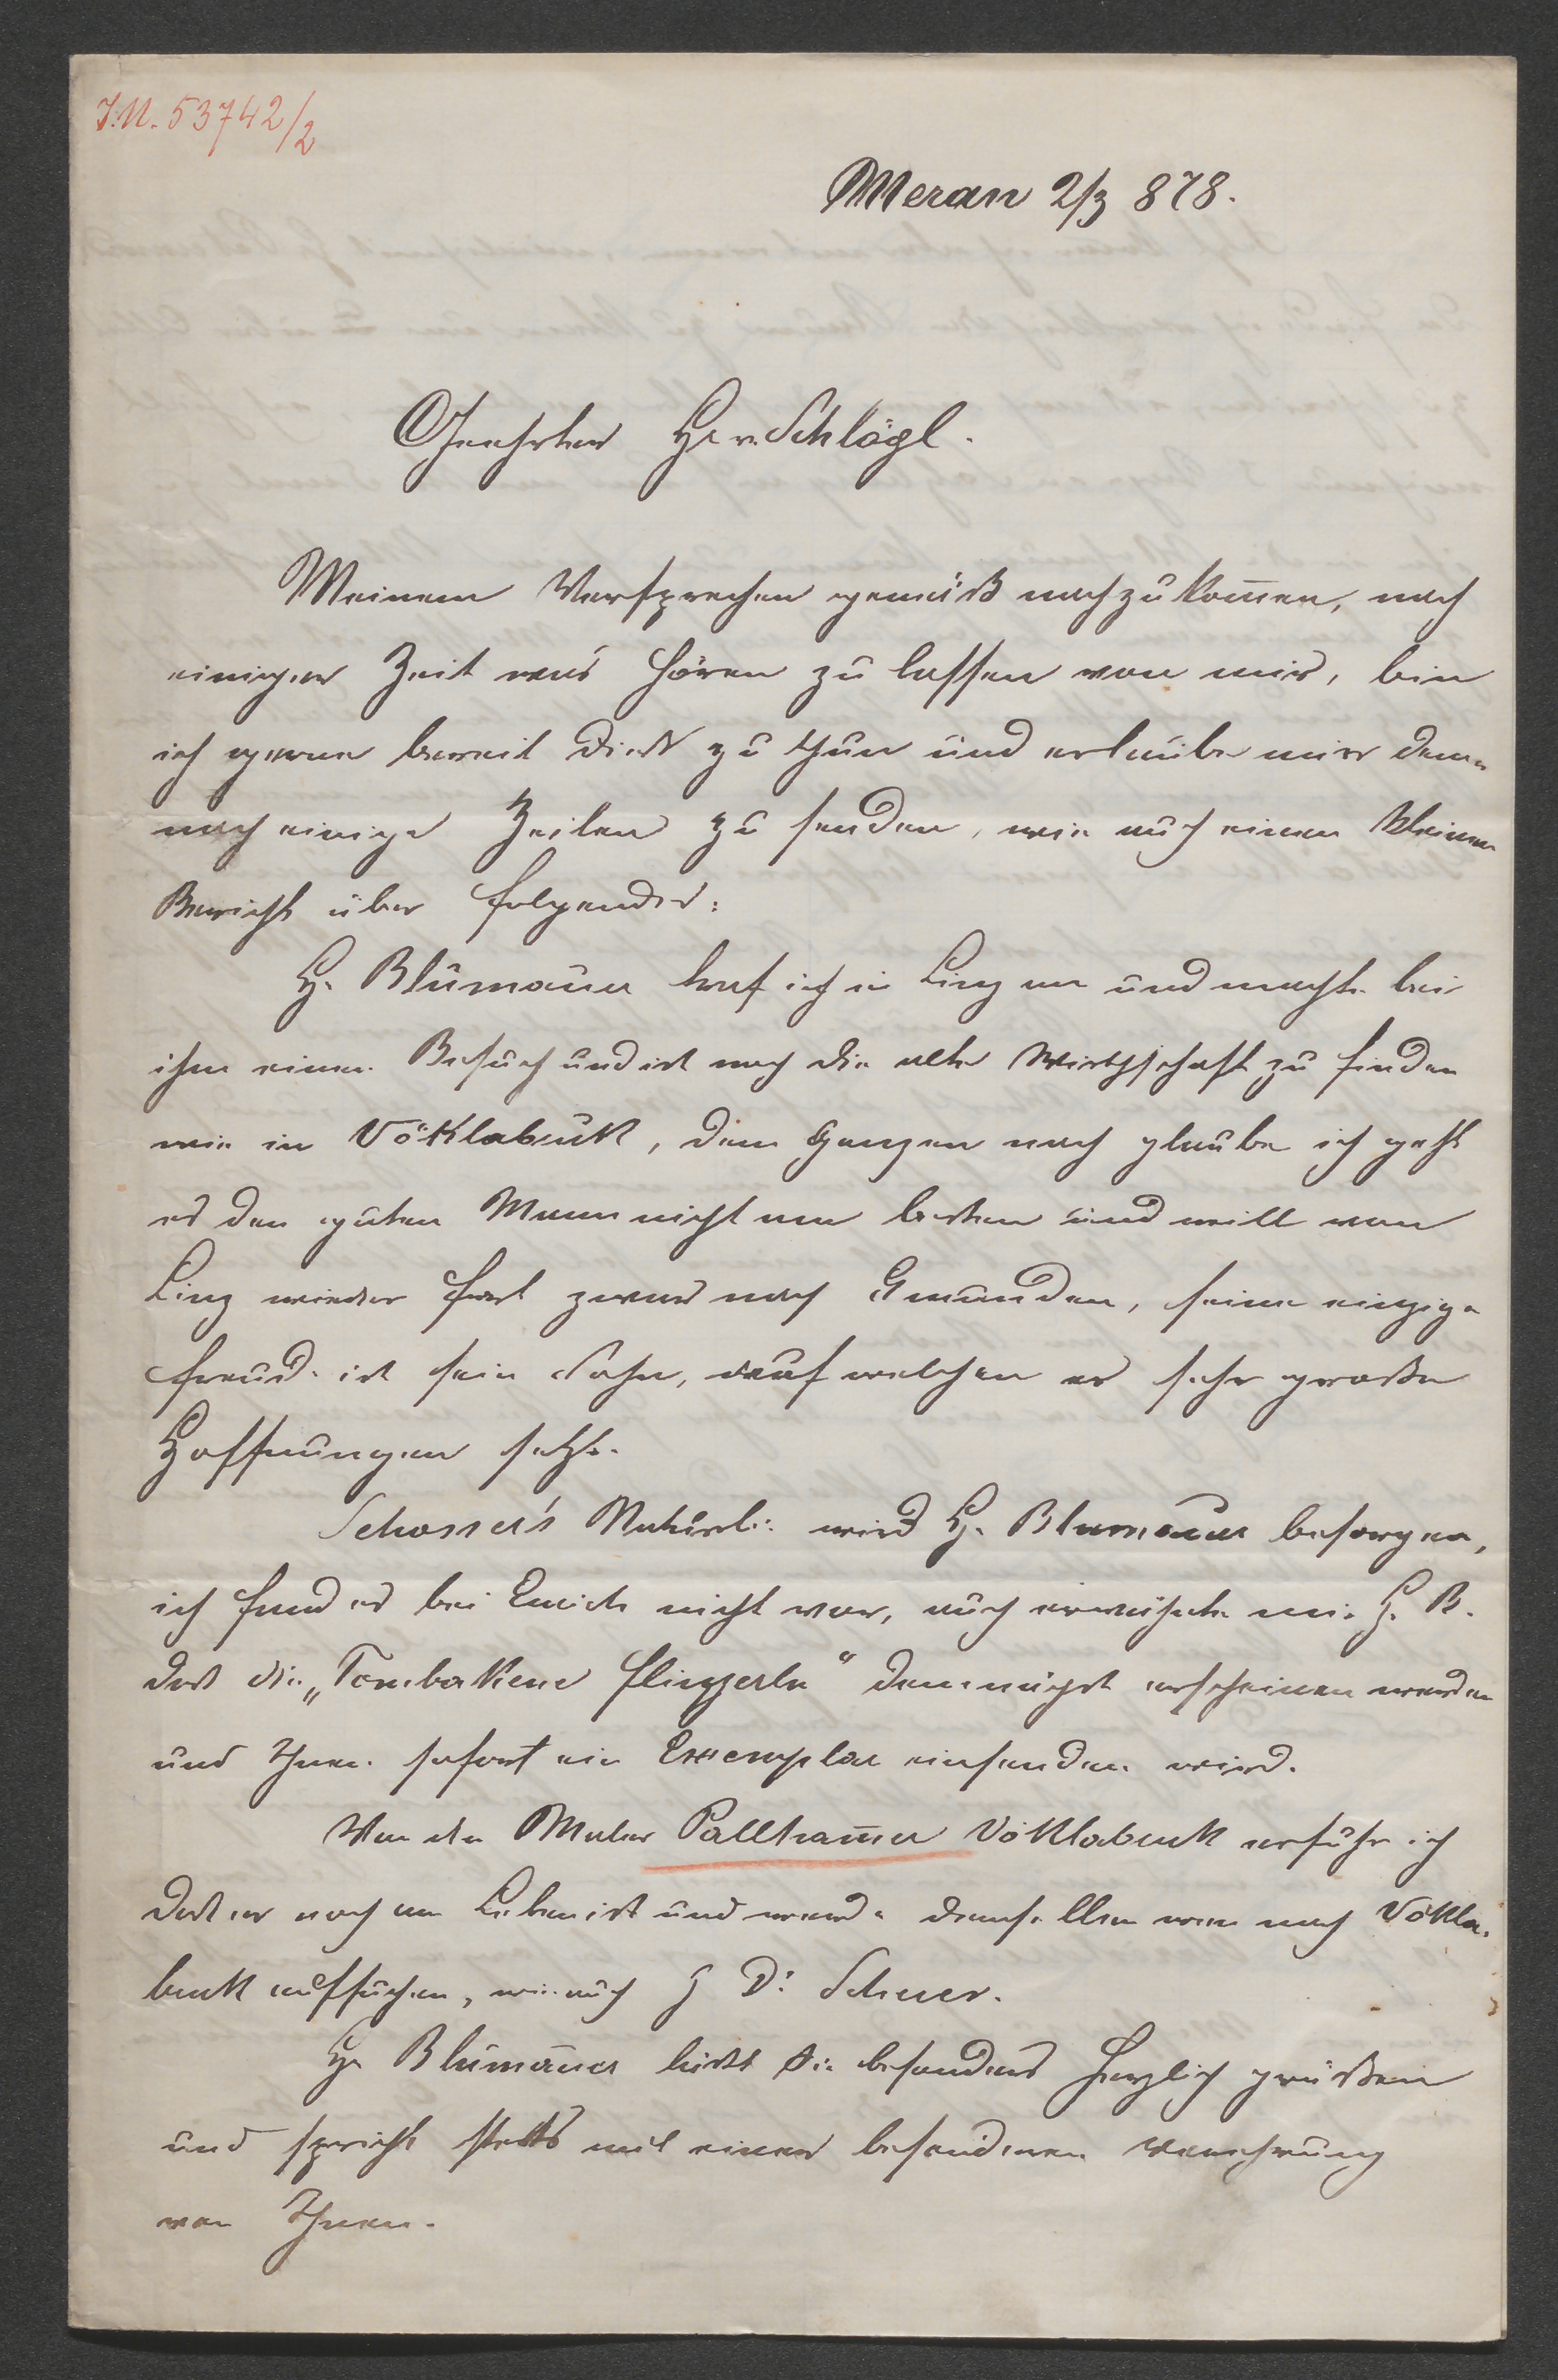 J.N. 53742/2
Meran 2/3 878.
Geehrter Hr v. Schlögl.
Meinem Versprechen gemäß nachzukom̄en, nach
einiger Zeit was hören zu lassen von mir, bin
ich gerne bereit dieß zu thun und erlaube mir dem-
nach einige Zeilen zu senden, wie auch einen kleinen
Bericht über folgendes:
H. Blumauer traf ich in Linz an und machte bei
ihm einen Besuch und ist noch die alte Wirthschaft zu finden
wie in Vöklabruk, dem Ganzen nach glaube ich geht
es den guten Mann nicht am besten und will von
Linz wieder fort zwar nach Gmunden, seine einzige
Freude ist sein Sohn, auf welchen er sehr große
Hoffnungen setzt.
Schosser's Naturl: wird H. Blumauer besorgen,
ich fand es bei nicht vor, auch mir H. B.
daß die „Tombakene Flinserln“ demnächst erscheinen werden
und Ihnen sofort ein Exemplar einsenden wird.
Von den Maler Pallham̄er Vöklabruk erfuhr ich
daß er noch am Leben ist und werde denselben wen nach Vökla-
bruk aufsuchen, wie auch H Dr. Scheuer.
Hr Blumauer läßt Sie besonders herzlich grüßen
und spricht stetts mit einer besonderen Verehrung
von Ihnen.